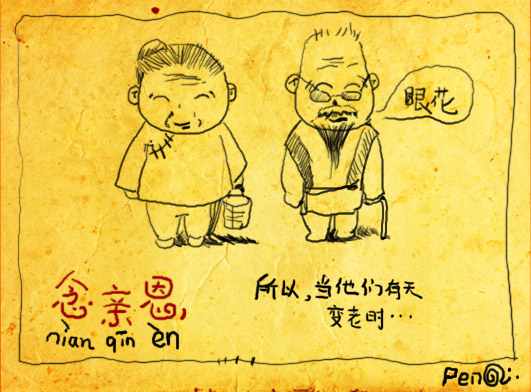 眼花
念亲恩,
niàn qīn ēn
所以,当他们有天
变老时···
Pen